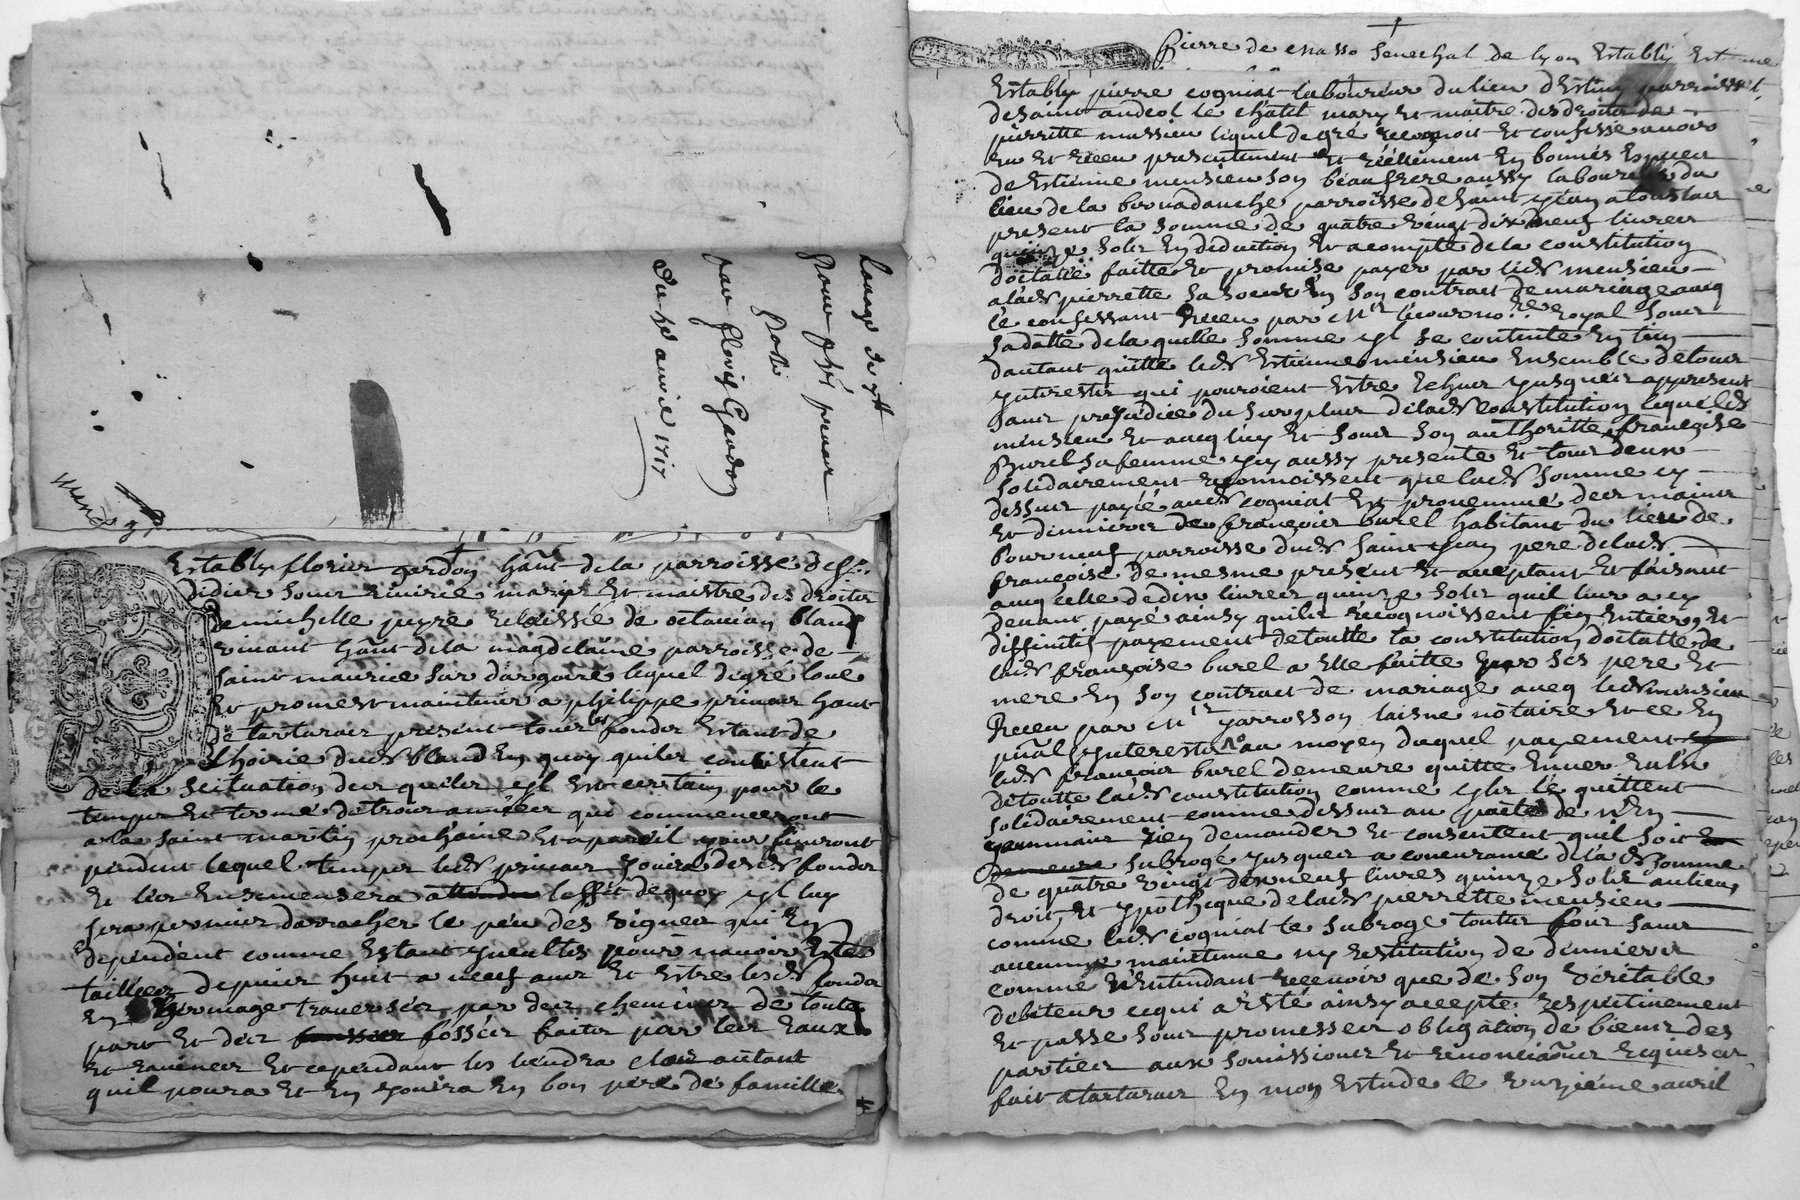 Louage de
pour phi primar
passé
par floris Gardon
du 12 avril 1717
Establi florier gardon hant de la parroisse de st
didier sous riverie maris et maistre des droitz
de michelle peyre relaissée de octavian bland
vivant hant de la magdelaine parroisse de
saint maurice sur dargoire lequel de gré loue
et promest maintenir a philippe primar hant
de tartaras present tous les fondz estant de
lhoirie dudt bland en quoy quilz consistent
de la scituation desquelz il est certain pour le
temps et terme de trois années qui commenceront
a la saint martin prochaine et a pareil jour finiront
pendent lequel temps ledt primar jouira desdt fondz
et les ensemensera leffet de quoy il luy
sera permis darracher le peu des vignes qui en
dependent comme estant incultes pour navoir esté
taillées depuis huit a neuf ans et estre lesdt fondz
en hermage traversées par des chemins de toute
part et des fossées faites par les eaux
et ravines et cependant les tiendra clos autant
quil poura et en jouira en bon pere de famille
pierre de masso senechal de lyon establi
Establi pierre cogniat laboureur du lieu parroisse
de saint andeol le chatel mary et maitre des droits de
pierrette mussieu lequel de gré recognoit et confesse avoir
eu et receu presentement et réellement en bonnes especes
de estienne mensieu son beaufrere aussy laboureur du
lieu de la parroisse de saint jean a toulas
present la somme de quatre vingt dix neuf livres
quinze solz en deduction et acompte de la constitution
dottalle faitte et promise payer par ledt mensieu
a ladt pierrette sa soeur en son contract de mariage avec
le confessant receu par Mre no.re royal sous
sa datte de laquelle somme il se contente en tien
dautant quitte ledt estienne mensieu ensemble de tous
interestz qui pouroient estre echus jusques appresent
sans prejudice du surplus de ladt constitution lequel
mensieu et avec luy et sous son authoritte françoise
Burel sa femme icy aussy presente et tous deux
solidairement reconnoissent que ladt somme cy
dessus payée audt cogniat est provennue des mains
et denniers de françois burel habitant du lieu de
bourneuf parroisse dudt saint jean pere de ladt
françoise de mesme present et acceptant et faisant
avec celle de dix livres quinze solz quil leur a cy
devant payé ainsy quilz recognoissent fin entier et
diffinitif payement de toutte la constitution dottalle de
ladt françoise burel a elle faitte par ses pere et
mere en son contract de mariage avec ledt mensieu
Receu par Mre jarrosson laisne notaire et ce en
pnāl et interestz au moyen duquel payement
ledt françois burel demeure quitte envers eulx
de toutte ladt constitution comme ilz le quittent
solidairement comme dessus au pacte de nen
jammais rien demander et consentent quil soit
demeure subrogé jusques a concurance de la dt somme
de quatre vingt dix neuf livres quinze solz au lieu
droit et ypotheque de ladt pierrette mensieu
comme ledt cogniat le subroge touttes fois sans
aucunne maintenue ny restitution de denniers
comme n'entendant recevoir que de son veritable
debiteur ce qui a esté ainsy accepté respectivement
et passé sous promesses obligation de biens des
parties aux soumissions et renonciaons requises
fait a tartaras en mon estude le unzieme avril